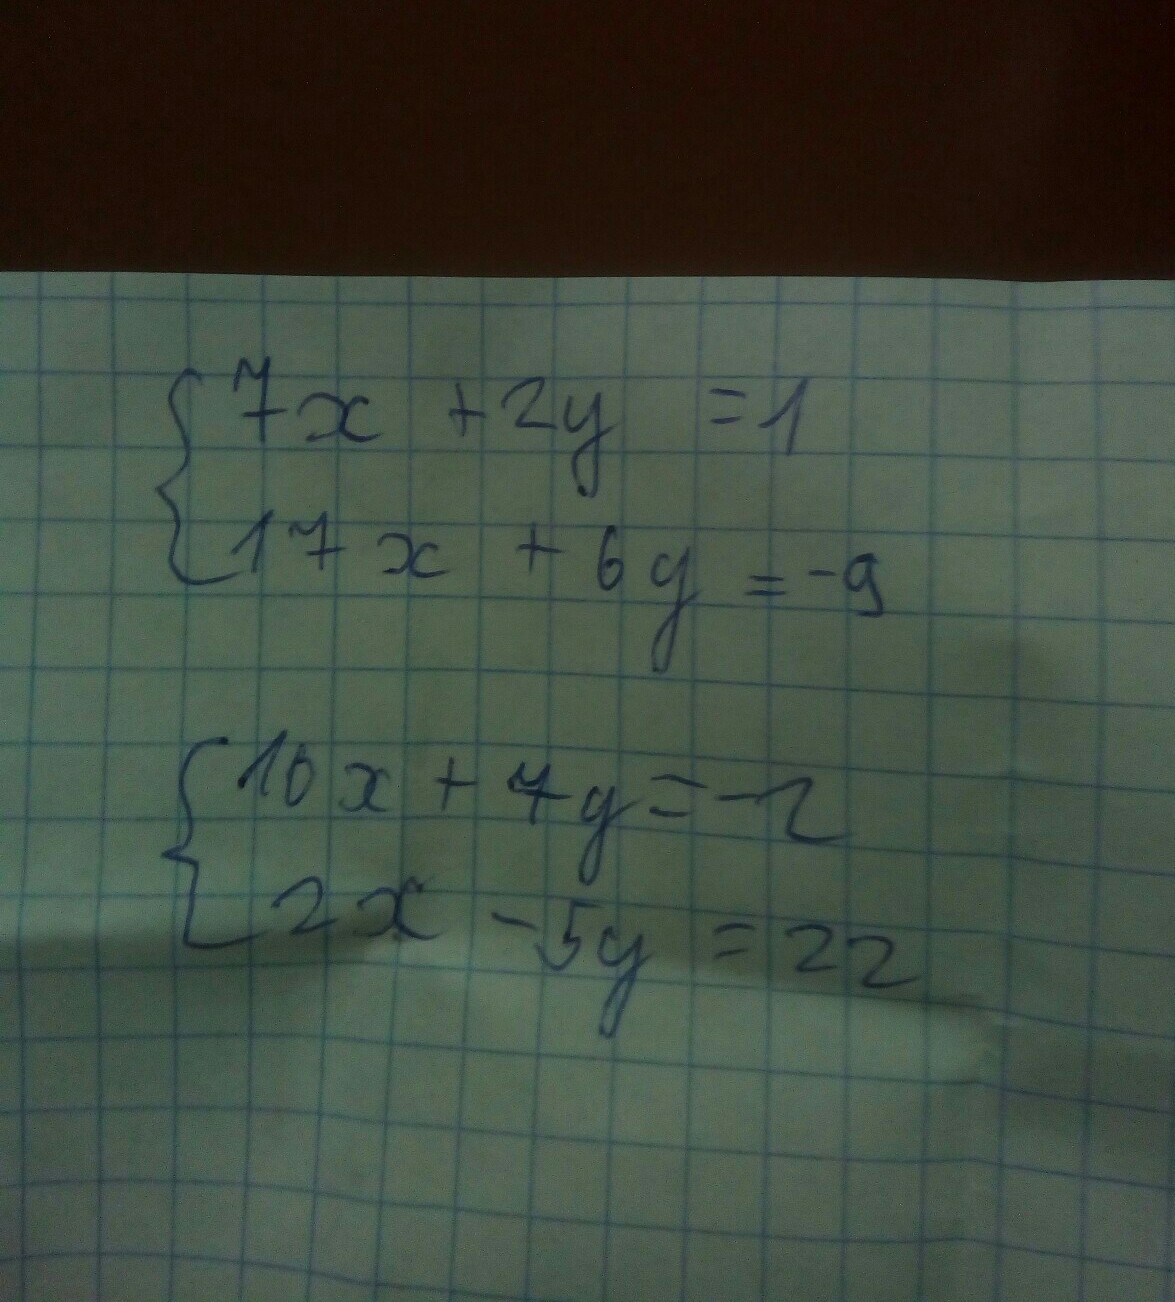 7x + 2y = 1
17x + 6y = -9
10x + 7y = -2
2x - 5y = 22